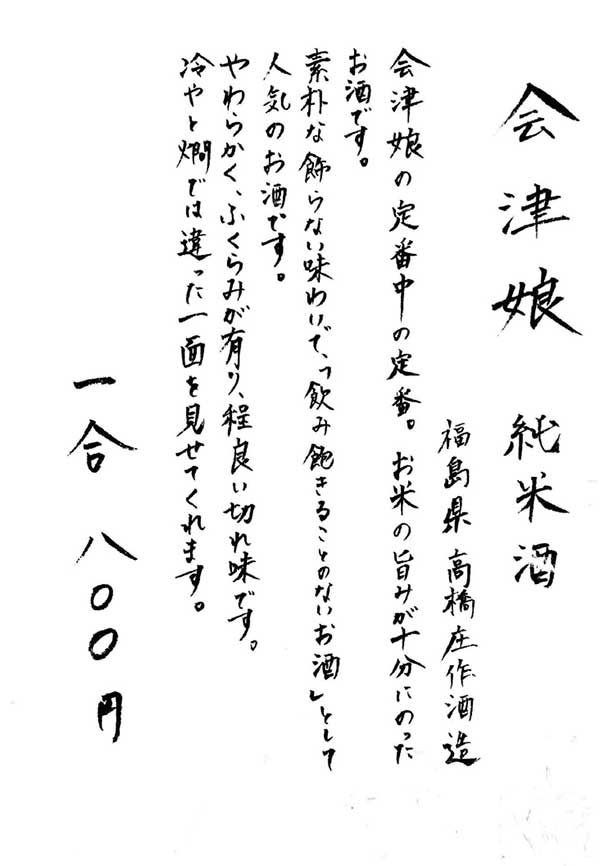 会津娘 純米酒
福島県 高橋庄作酒造
会津娘の定番中の定番。お米の旨みが十分にのった
お酒です。
素朴な飾らない味わいで、「飲み飽きることのないお酒」として
人気のお酒です。
やわらかく、ふくらみが有り、程良い切れ味です。
冷やと燗では違った一面を見せてくれます。
一合 八〇〇円